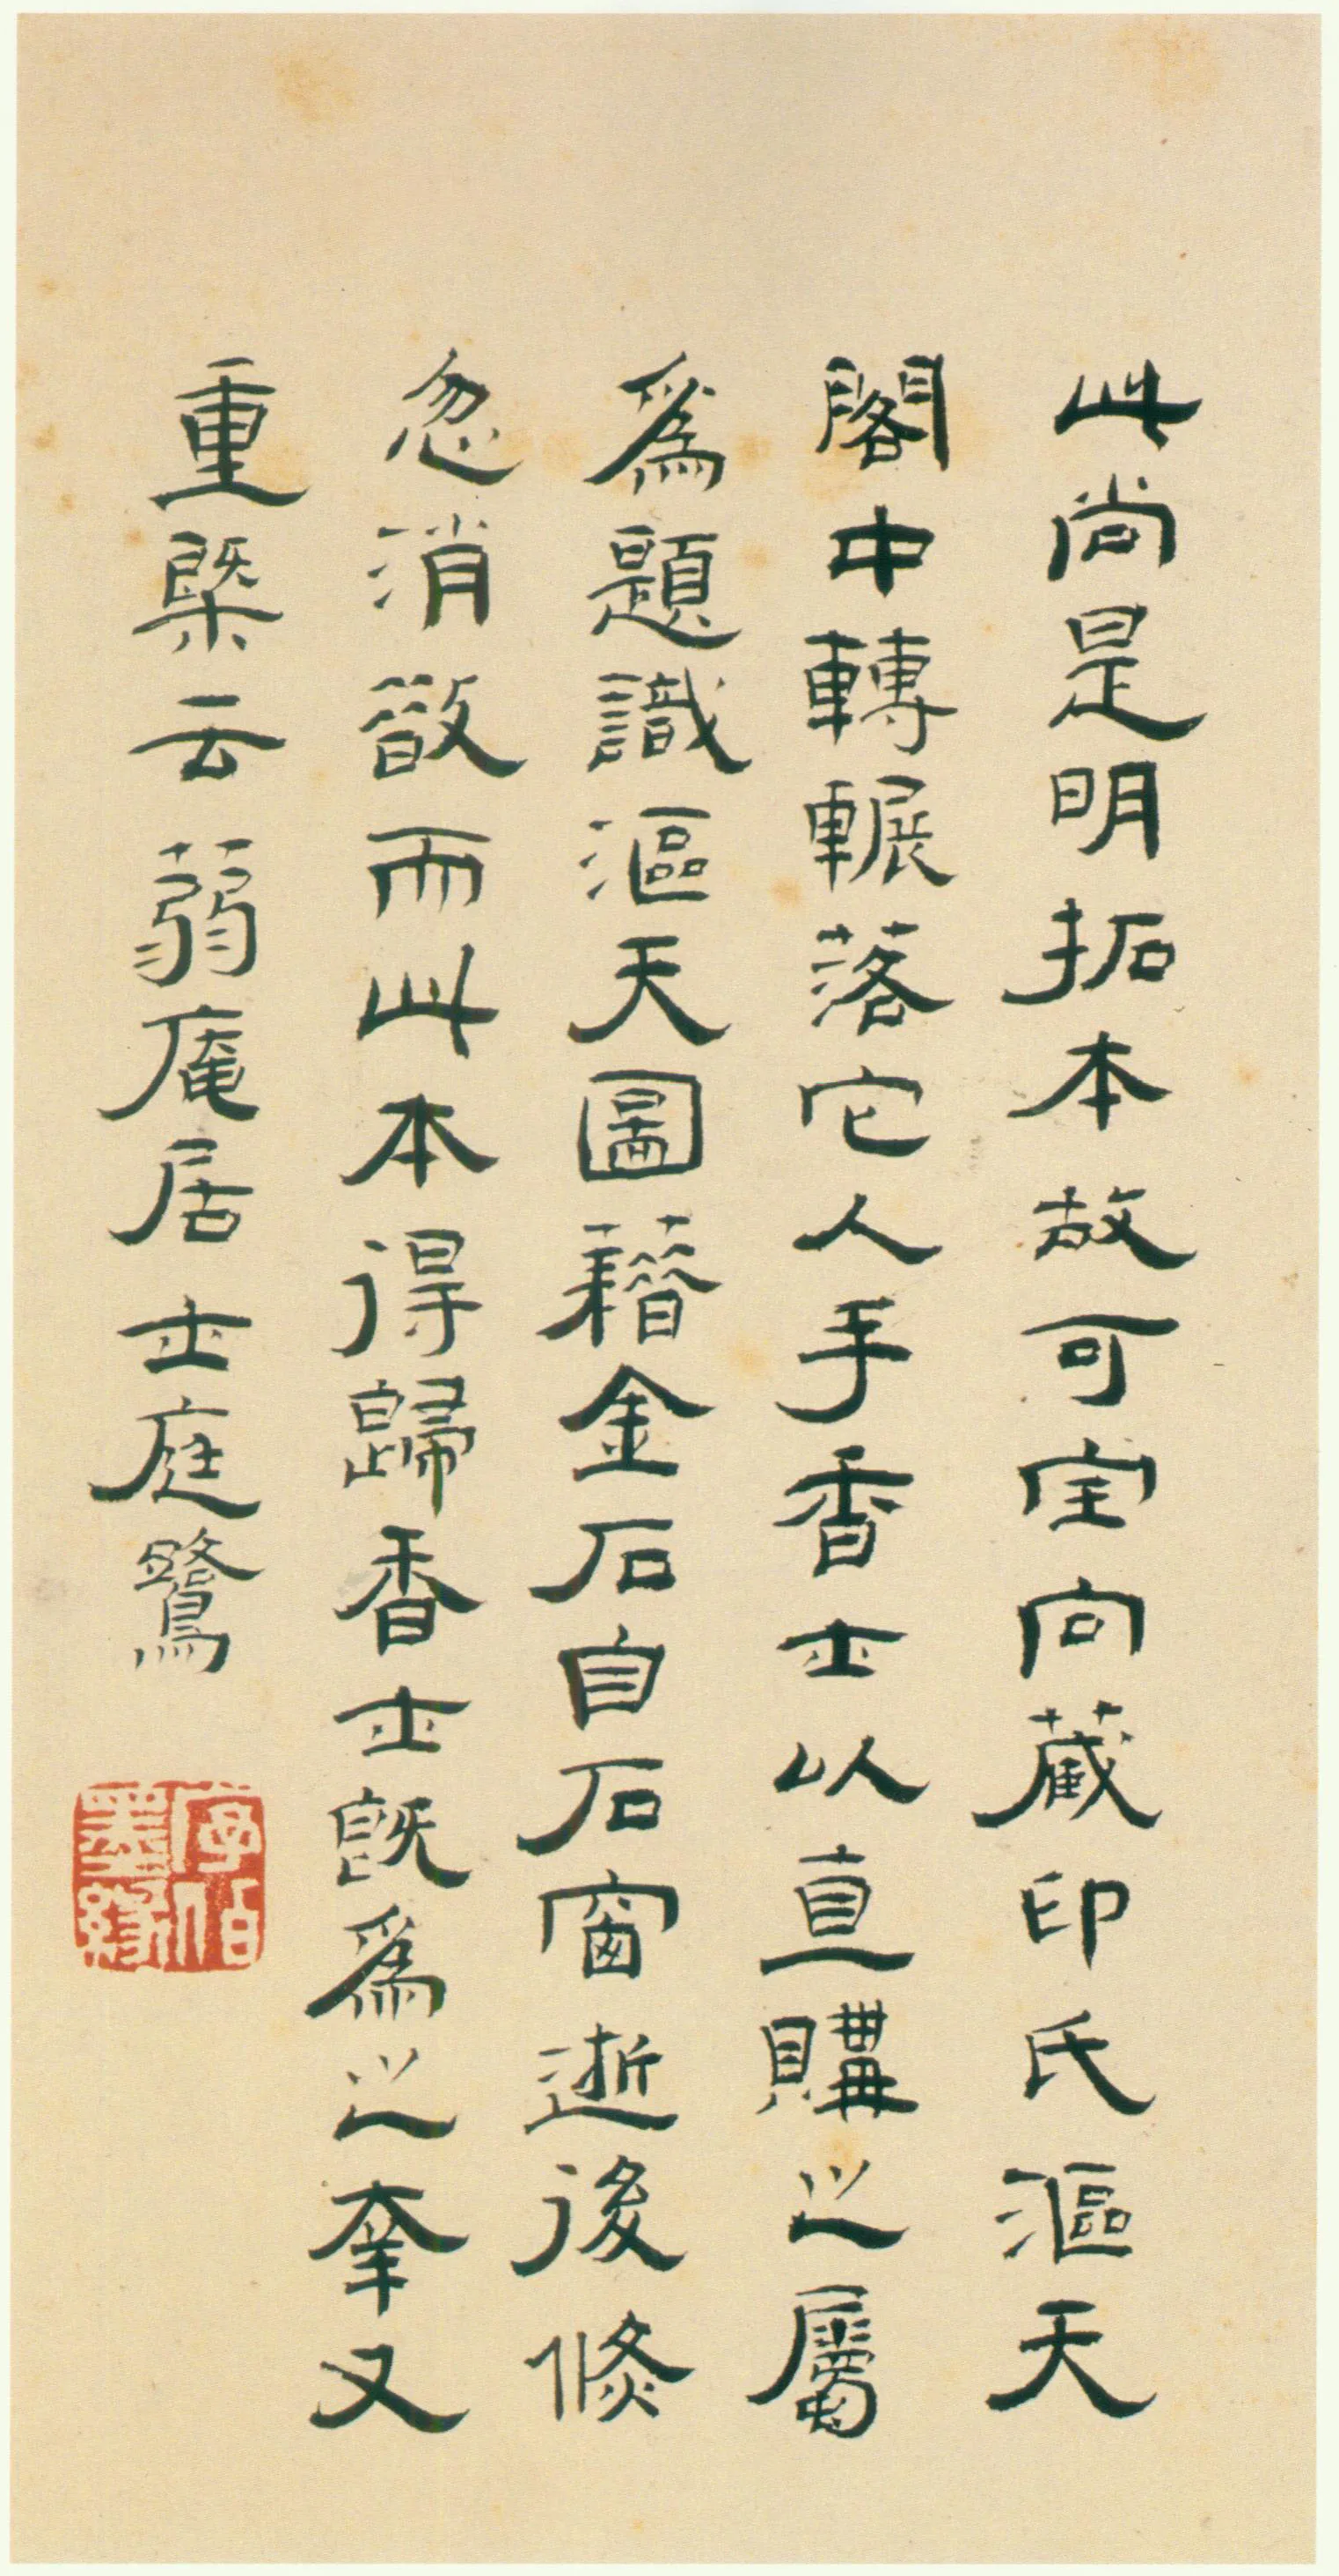 此尚是明拓本故可宝向藏印氏漚天
閣中轉輾落它人手香士以直購之屬
爲題識漚天圖藉金石自石窗逝後倏
忽消散而此本得歸香士既爲之幸又
重槩云蒻庵居士庭鷺
序伯墨緣